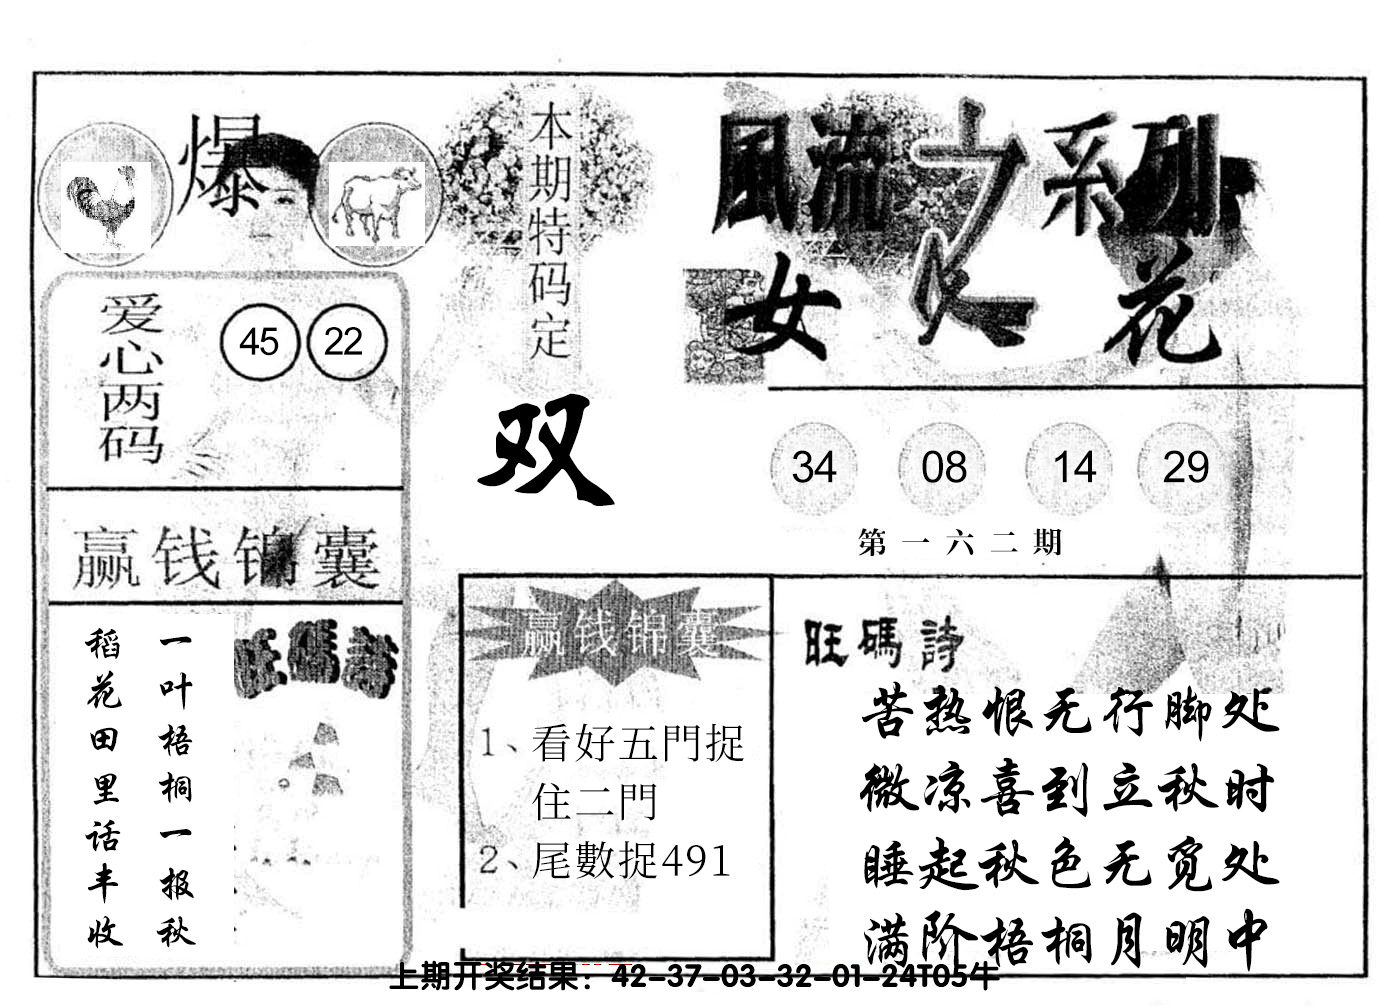 爆
本期特码定
双
風流之系列
女人花
爱心两码
45 22
34 08 14 29
第一六二期
赢钱锦囊
一叶梧桐一报秋
稻花田里话丰收
旺碼詩
赢钱锦囊
1、看好五門捉
住二門
2、尾數捉491
旺碼詩
苦热恨无行脚处
微凉喜到立秋时
睡起秋色无觅处
满阶梧桐月明中
上期开奖结果：42-37-03-32-01-24T05牛